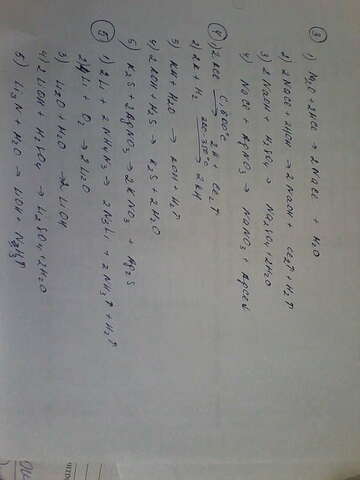 ③ 1) Na2O + 2HCl → 2NaCl + H2O
2) 2NaCl + 2HOH → 2NaOH + Cl2↑ + H2↑
3) 2NaOH + H2SO4 → Na2SO4 + 2H2O
4) NaCl + AgNO3 → NaNO3 + AgCl↓
④ 1) 2KCl → 2K + Cl2↑
2) 2K + H2 200-350°C → 2KH
3) KH + H2O → KOH + H2↑
4) 2KOH + H2S → K2S + 2H2O
5) K2S + 2AgNO3 → 2KNO3 + Ag2S
⑤ 1) 2Li + 2NH4N3 → 2N3Li + 2NH3↑ + H2↑
2) 4Li + O2 → 2Li2O
3) Li2O + H2O → 2LiOH
4) 2LiOH + H2SO4 → Li2SO4 + 2H2O
5) Li3N + H2O → LiOH +